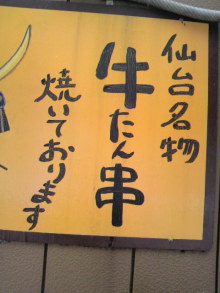 仙台名物
牛たん串
焼いております